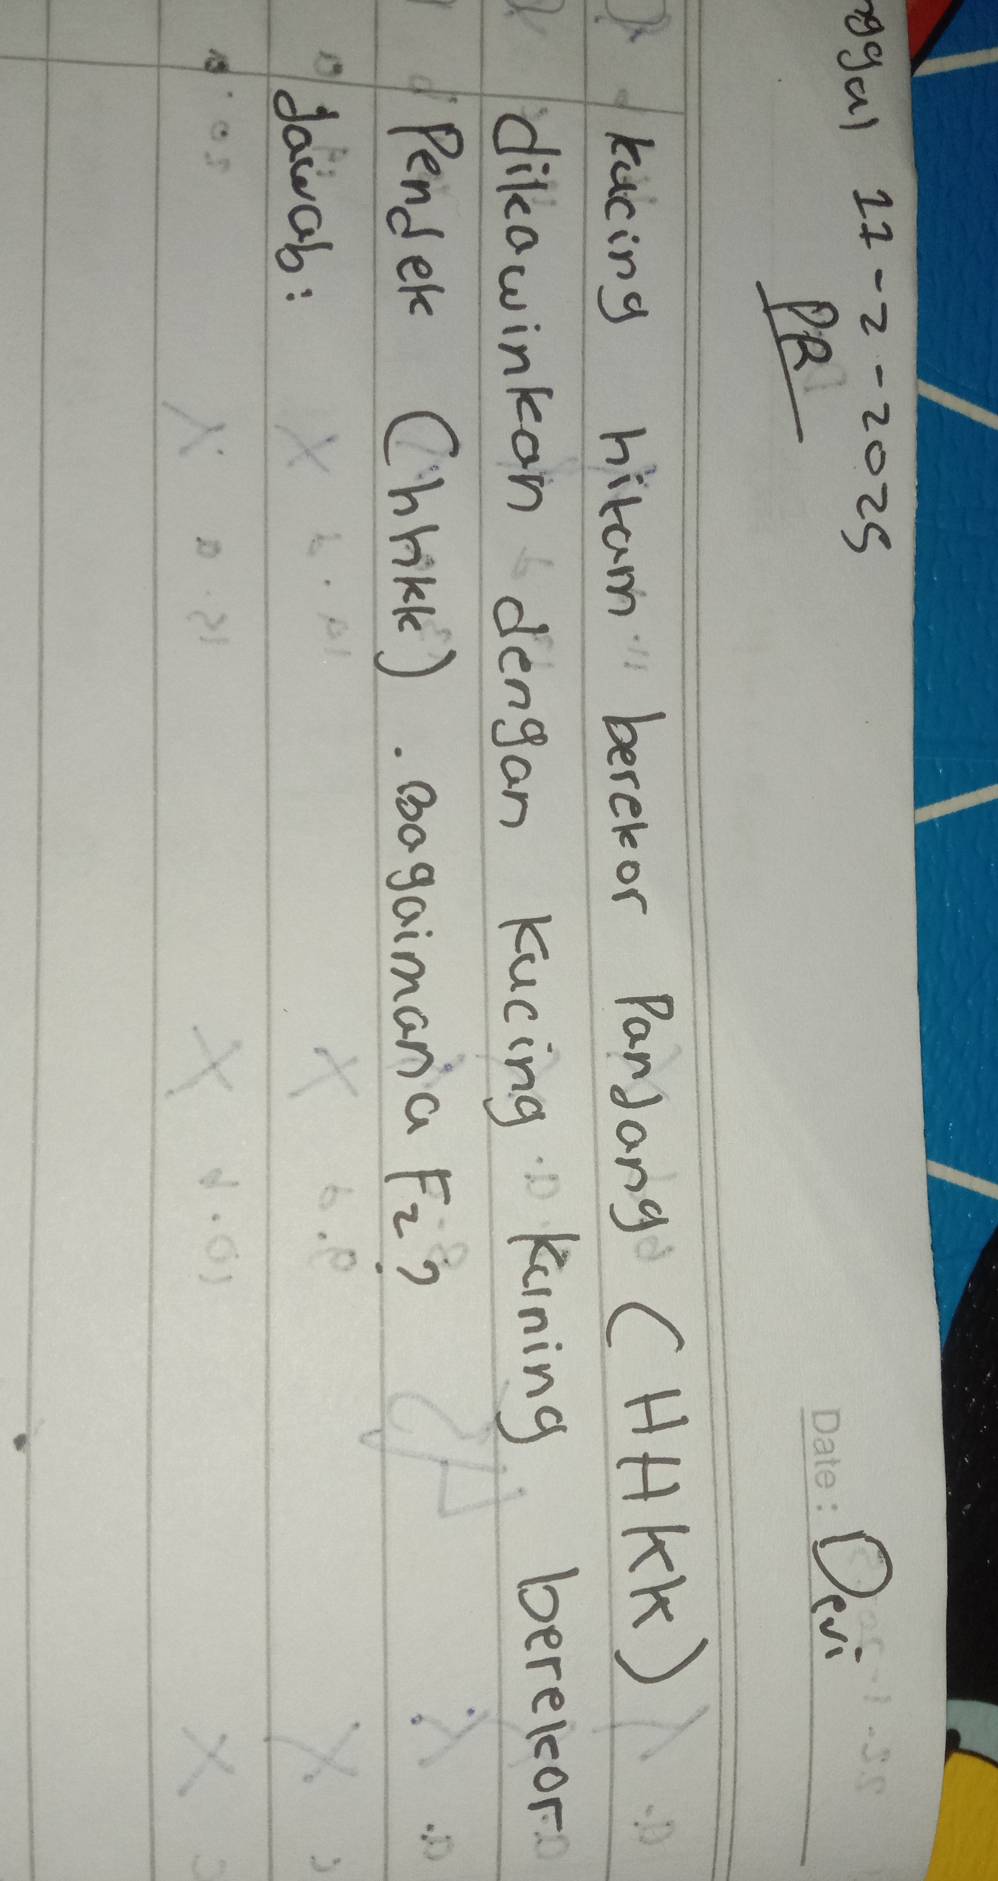 nggal 17-2-2025
Date: Devi
PR
kucing hitam berekor Panjang (HHKK)
dikawinkan dengan kucing kuning berekor
Pendek (hhkk). Bagaimana F2?
Jawab: